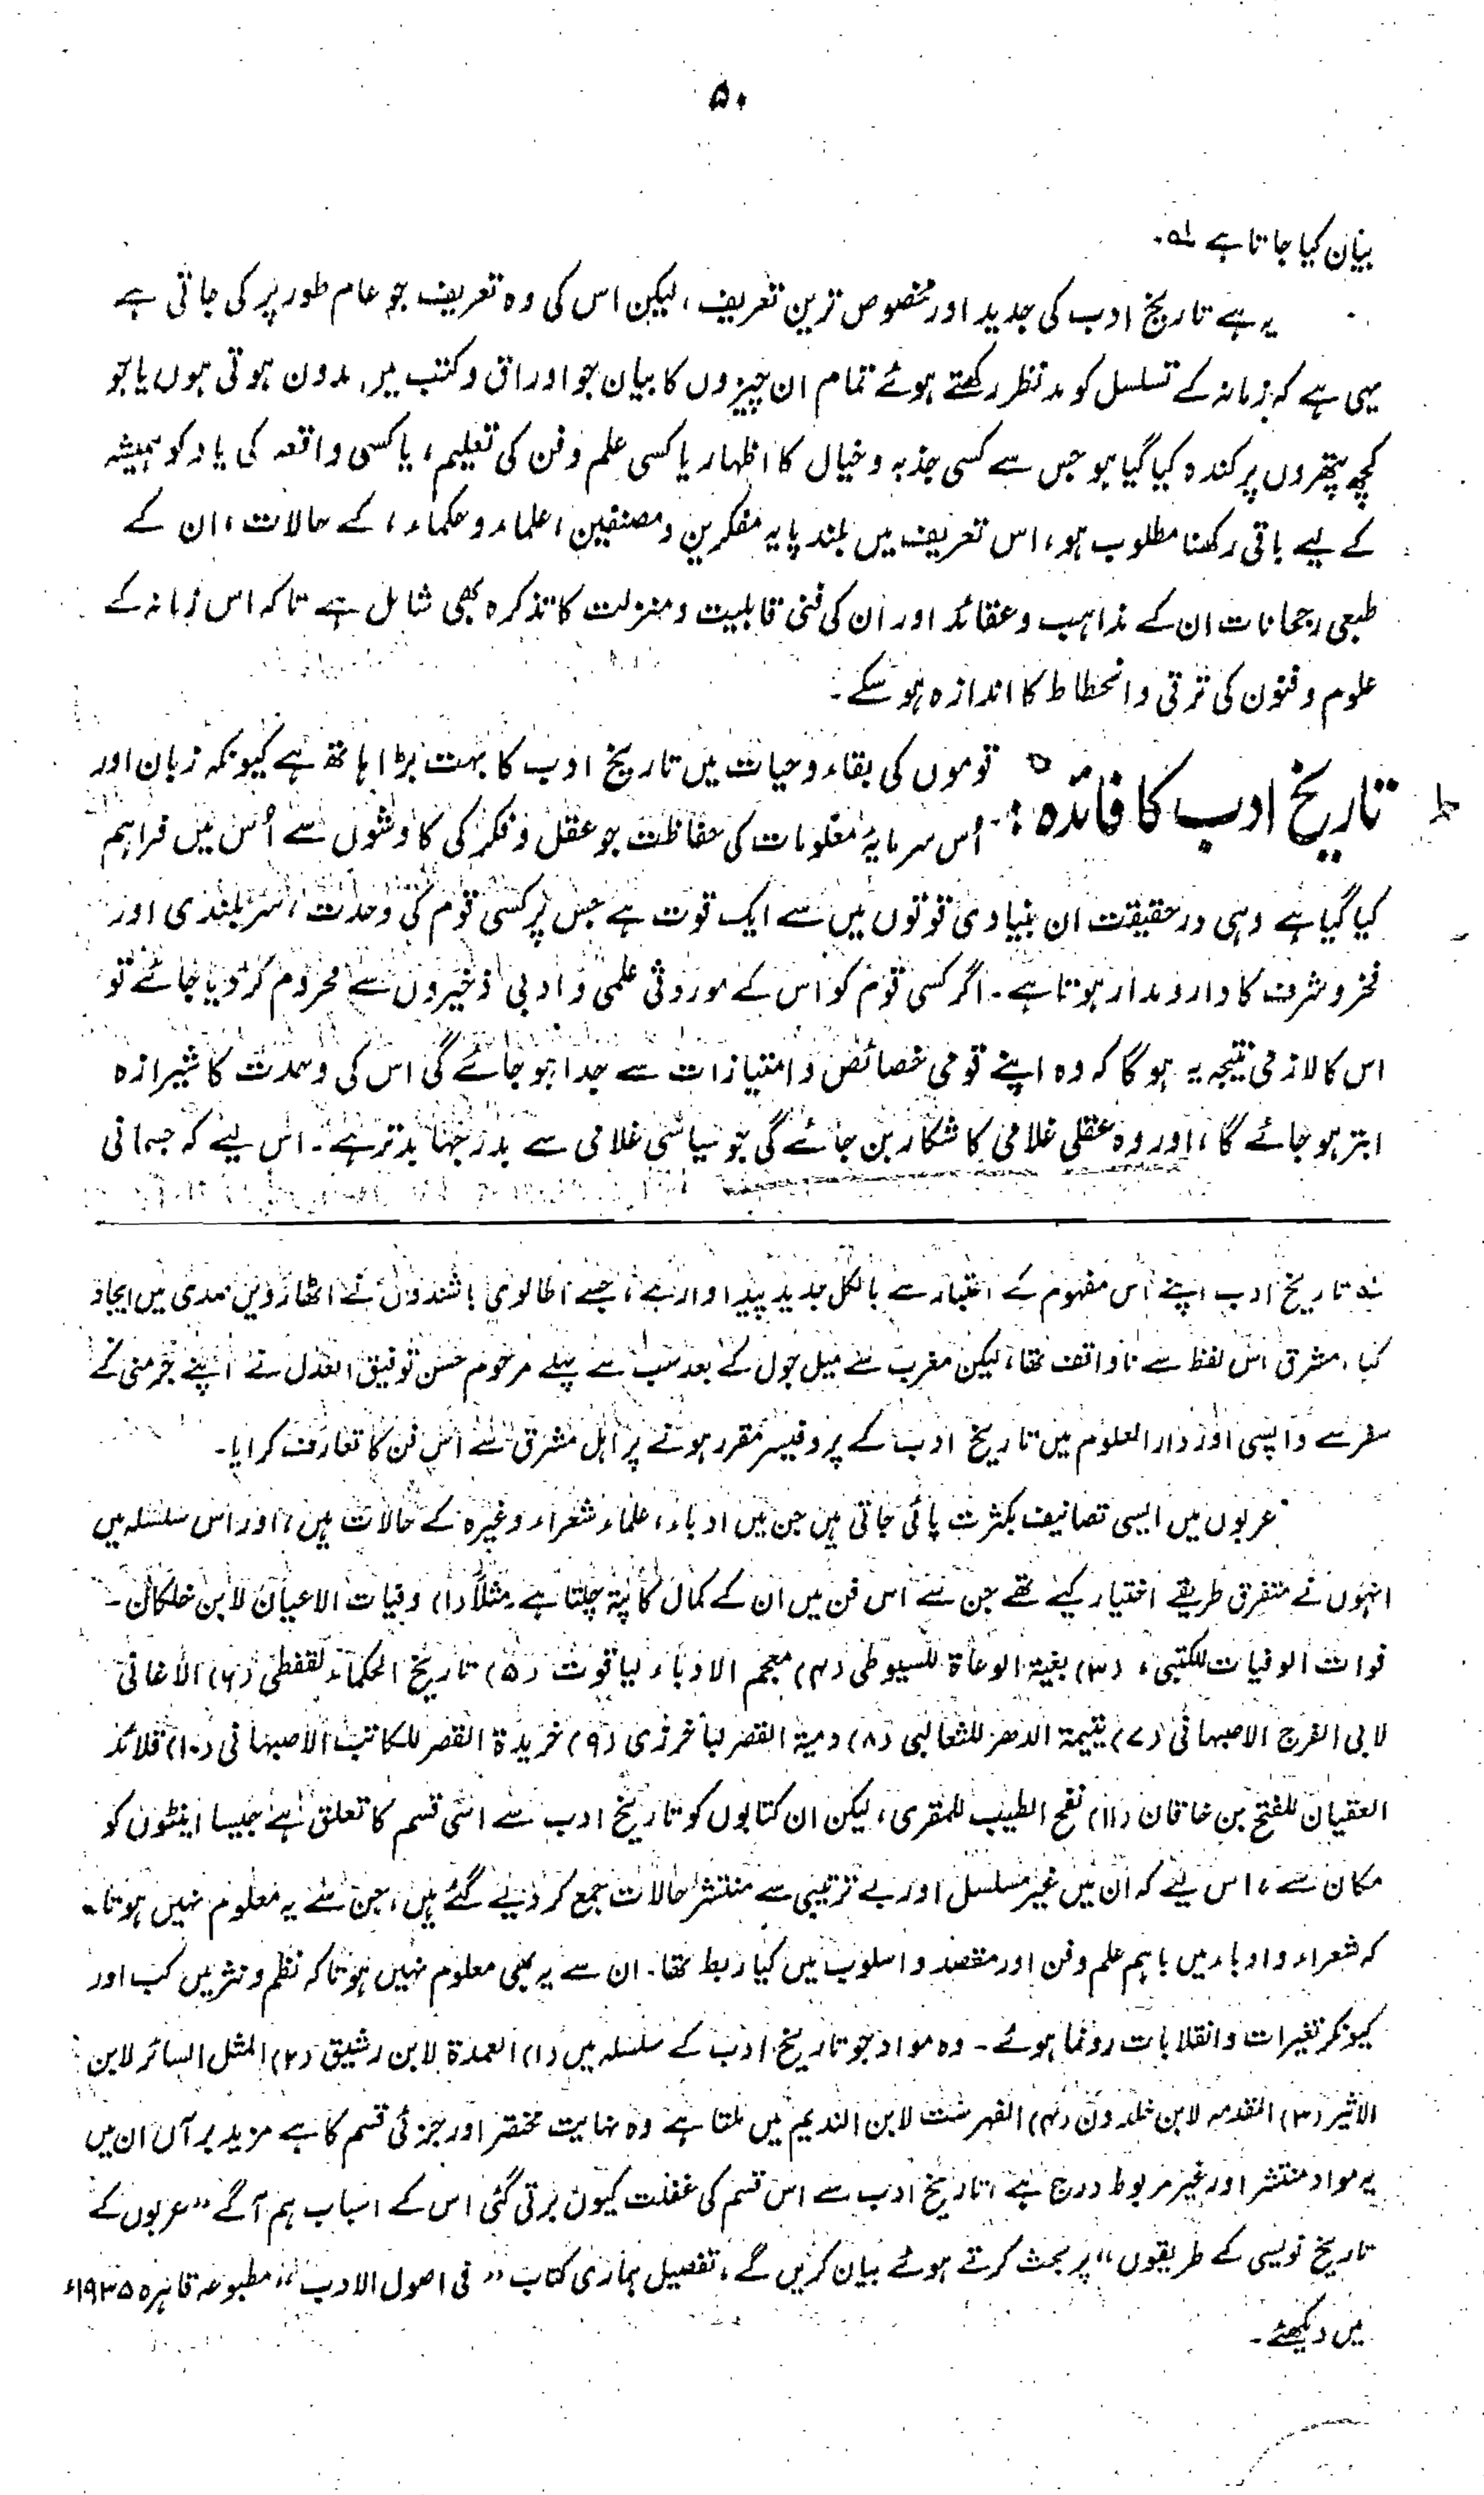 ۵۰
بیان کیا جاتا ہے ؎۱۔
یہ ہے تاریخ ادب کی جدید اور مخصوص ترین تعریف، لیکن اس کی وہ تعریف جو عام طور پر کی جاتی ہے
یہی ہے کہ زمانہ کے تسلسل کو مدنظر رکھتے ہوئے تمام ان چیزوں کا بیان جو اوراق و کتب میں مدون ہوتی ہوں یا جو
کچھ پتھروں پر کندہ کیا گیا ہو جس سے کسی جذبہ و خیال کا اظہار یا کسی علم و فن کی تعلیم، یا کسی واقعہ کی یاد کو ہمیشہ
کے لیے باقی رکھنا مطلوب ہو، اس تعریف میں بلند پایہ مفکرین و مصنفین، علماء و حکماء، کے حالات، ان کے
طبعی رجحانات ان کے مذاہب و عقائد اور ان کی فنی قابلیت و منزلت کا تذکرہ بھی شامل ہے تاکہ اس زمانہ کے
علوم و فنون کی ترقی و انحطاط کا اندازہ ہو سکے۔
تاریخ ادب کا فائدہ :۔ قوموں کی بقاء و حیات میں تاریخ ادب کا بہت بڑا ہاتھ ہے کیونکہ زبان اور
اُس سرمایۂ معلومات کی حفاظت جو عقل و فکر کی کاوشوں سے اُس میں فراہم
کیا گیا ہے وہی درحقیقت ان بنیادی قوتوں میں سے ایک قوت ہے جس پر کسی قوم کی وحدت، سربلندی اور
فخر و شرف کا دارومدار ہوتا ہے۔ اگر کسی قوم کو اس کے موروثی علمی و ادبی ذخیروں سے محروم کر دیا جائے تو
اس کا لازمی نتیجہ یہ ہوگا کہ وہ اپنے قومی خصائص و امتیازات سے جدا ہو جائے گی اس کی وحدت کا شیرازہ
ابتر ہو جائے گا، اور وہ عقلی غلامی کا شکار بن جائے گی جو سیاسی غلامی سے بدرجہا بدتر ہے۔ اس لیے کہ جسمانی
؎۱ تاریخ ادب اپنے اس مفہوم کے اعتبار سے بالکل جدید پیداوار ہے، جسے اطالوی باشندوں نے اٹھارویں صدی میں ایجاد
کیا، مشرق اس لفظ سے ناواقف تھا، لیکن مغرب سے میل جول کے بعد سب سے پہلے مرحوم حسن توفیق العدل نے اپنے جرمنی کے
سفر سے واپسی اور دارالعلوم میں تاریخ ادب کے پروفیسر مقرر ہونے پر اہل مشرق سے اس فن کا تعارف کرایا۔
عربوں میں ایسی تصانیف بکثرت پائی جاتی ہیں جن میں ادباء، علماء شعراء وغیرہ کے حالات ہیں، اور اس سلسلہ میں
انہوں نے متفرق طریقے اختیار کیے تھے جن سے اس فن میں ان کے کمال کا پتہ چلتا ہے مثلاً (۱) وفیات الاعیان لابن خلکان۔
فوات الوفیات للکتبی، (۳) بغیۃ الوعاۃ للسیوطی (۴) معجم الادباء لیاقوت (۵) تاریخ الحکماء لقفطی (۶) الأغانی
لابی الفرج الاصبہانی (۷) یتیمۃ الدھر للثعالبی (۸) دمیۃ القصر لباخرزی (۹) خریدۃ القصر للکاتب الاصبہانی (۱۰) قلائد
العقیان للفتح بن خاقان (۱۱) نفح الطیب للمقری، لیکن ان کتابوں کو تاریخ ادب سے اسی قسم کا تعلق ہے جیسا اینٹوں کو
مکان سے، اس لیے کہ ان میں غیر مسلسل اور بے ترتیبی سے منتشر حالات جمع کر دیے گئے ہیں، جن سے یہ معلوم نہیں ہوتا
کہ شعراء و ادباء میں باہم علم و فن اور مقصد و اسلوب میں کیا ربط تھا۔ ان سے یہ بھی معلوم نہیں ہوتا کہ نظم و نثر میں کب اور
کیونکر تغیرات و انقلابات رونما ہوئے۔ وہ مواد جو تاریخ ادب کے سلسلہ میں (۱) العمدۃ لابن رشیق (۲) المثل السائر لابن
الاثیر (۳) المقدمہ لابن خلدون (۴) الفہرست لابن الندیم میں ملتا ہے وہ نہایت مختصر اور جزئی قسم کا ہے مزید برآں ان میں
یہ مواد منتشر اور غیر مربوط درج ہے، تاریخ ادب سے اس قسم کی غفلت کیوں برتی گئی اس کے اسباب ہم آگے ”عربوں کے
تاریخ نویسی کے طریقوں“ پر بحث کرتے ہوئے بیان کریں گے، تفصیل ہماری کتاب ”فی اصول الادب“ مطبوعہ قاہرہ ۱۹۳۵ء
میں دیکھئے۔